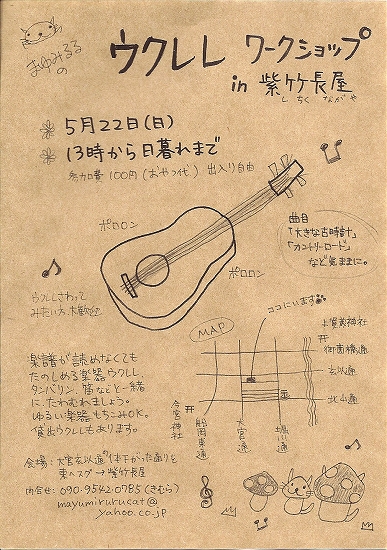 まゆみるるの
ウクレレ ワークショップ
in 紫竹長屋
しちく ながや
5月22日(日)
13時から日暮れまで
参加費100円(おやつ代) 出入り自由
ポロロン
ポロロン
曲目
「大きな古時計」
「カントリーロード」
など気ままに。
ウクレレさわって
みたい方大歓迎
楽譜が読めなくても
たのしめる楽器ウクレレ、
タンバリン、笛などと一緒
に たわむれましょう。
ゆるい楽器もちこみOK。
貸出ウクレレもあります。
ココにいます
MAP
上賀茂神社
御薗橋通
玄以通
北山通
今宮神社
船岡東通
大宮通
堀川通
会場・大宮玄以通
東へスグ→紫竹長屋
問合せ・090-9542-0785(きむら)
mayumirurucat@
yahoo.co.jp